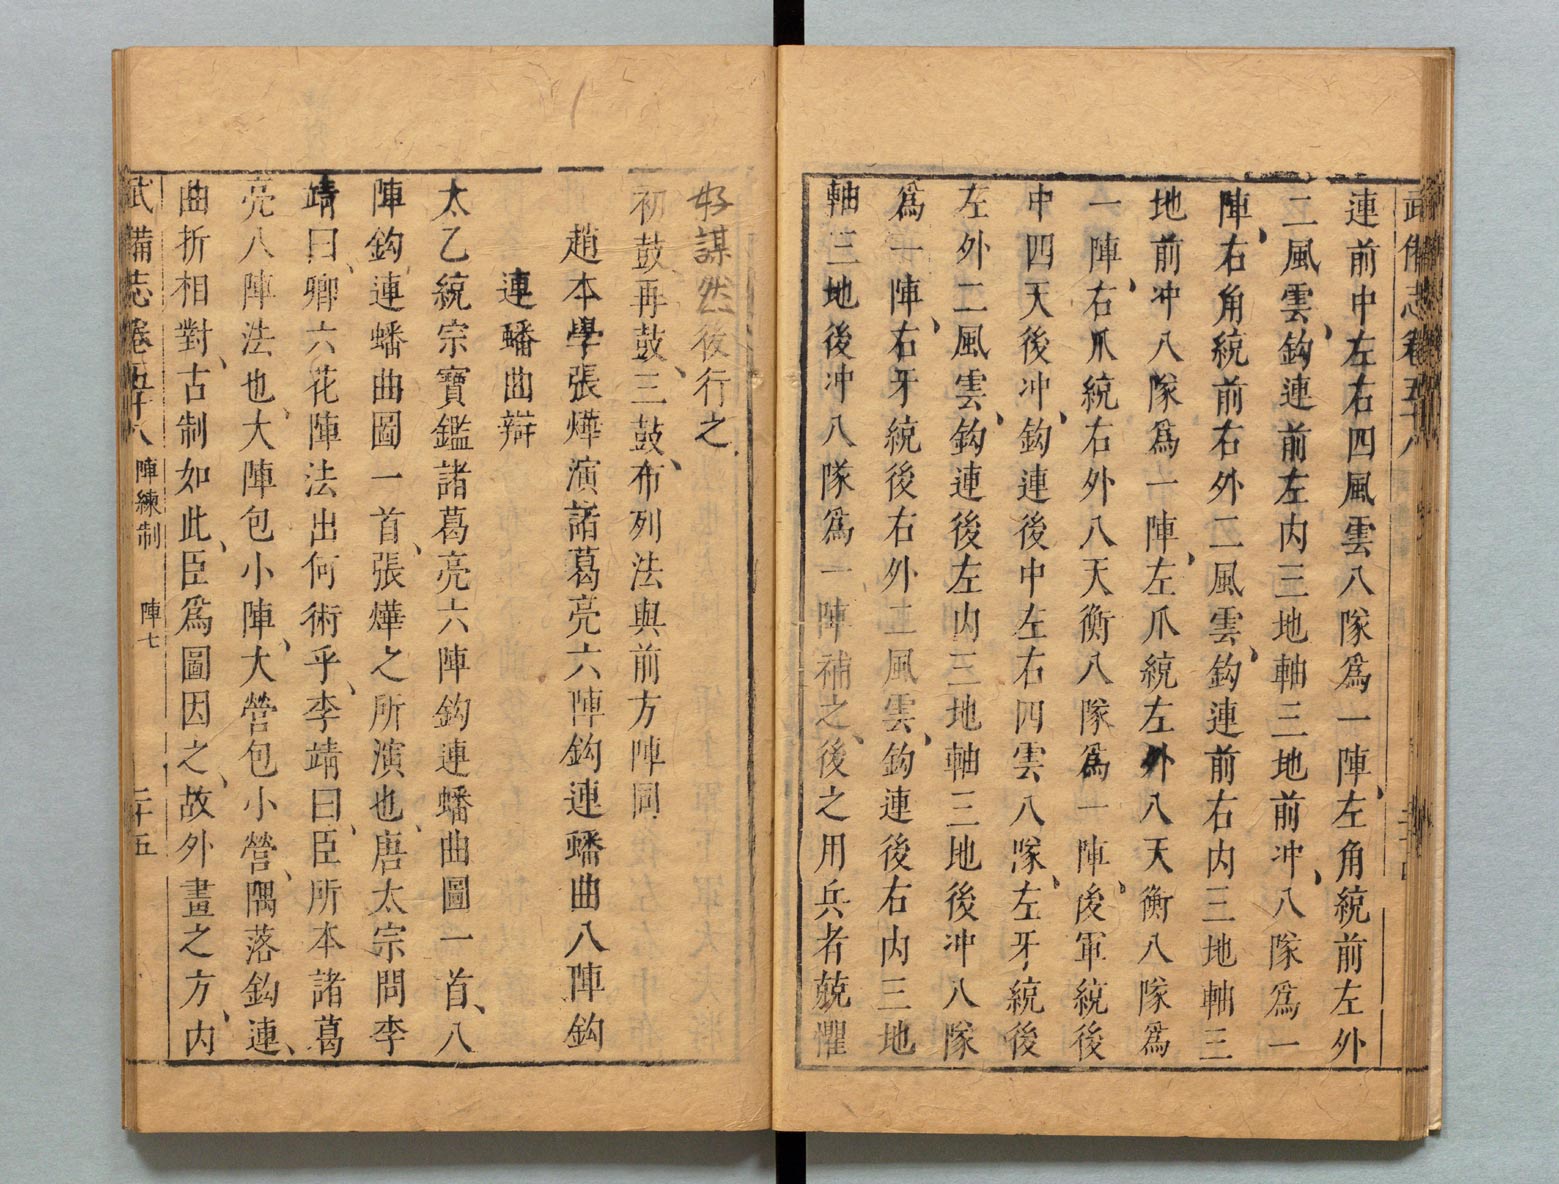 武備志卷五十八
連前中左右四風雲八隊爲一陣、左角統前左外
二風雲、鈎連前左內三地軸三地前冲、八隊爲一
陣、右角統前右外二風雲、鈎連前右內三地軸三
地前冲八隊爲一陣、左爪統左外八天衡八隊爲
一陣、右爪統右外八天衡八隊爲一陣。後軍統後
中四天後冲、鈎連後中左右四雲八隊、左牙統後
左外二風雲、鈎連後左內三地軸三地後冲八隊
爲一陣、右牙統後右外二風雲、鈎連後右內三地
軸三地後冲八隊爲一陣補之、後之用兵者兢懼
好謀然後行之
初鼓、再鼓、三鼓、布列法與前方陣同
趙本學張燁演諸葛亮六陣鈎連蟠曲八陣鈎
連蟠曲辯
太乙統宗寶鑑諸葛亮六陣鈎連蟠曲圖一首、八
陣鈎連蟠曲圖一首、張燁之所演也、唐太宗問李
靖曰、卿六花陣法出何術乎、李靖曰、臣所本諸葛
亮八陣法也、大陣包小陣、大營包小營、隅落鈎連、
曲折相對、古制如此、臣爲圖因之、故外畫之方、内
武備志卷五十八 陣練制 陣七 二十五